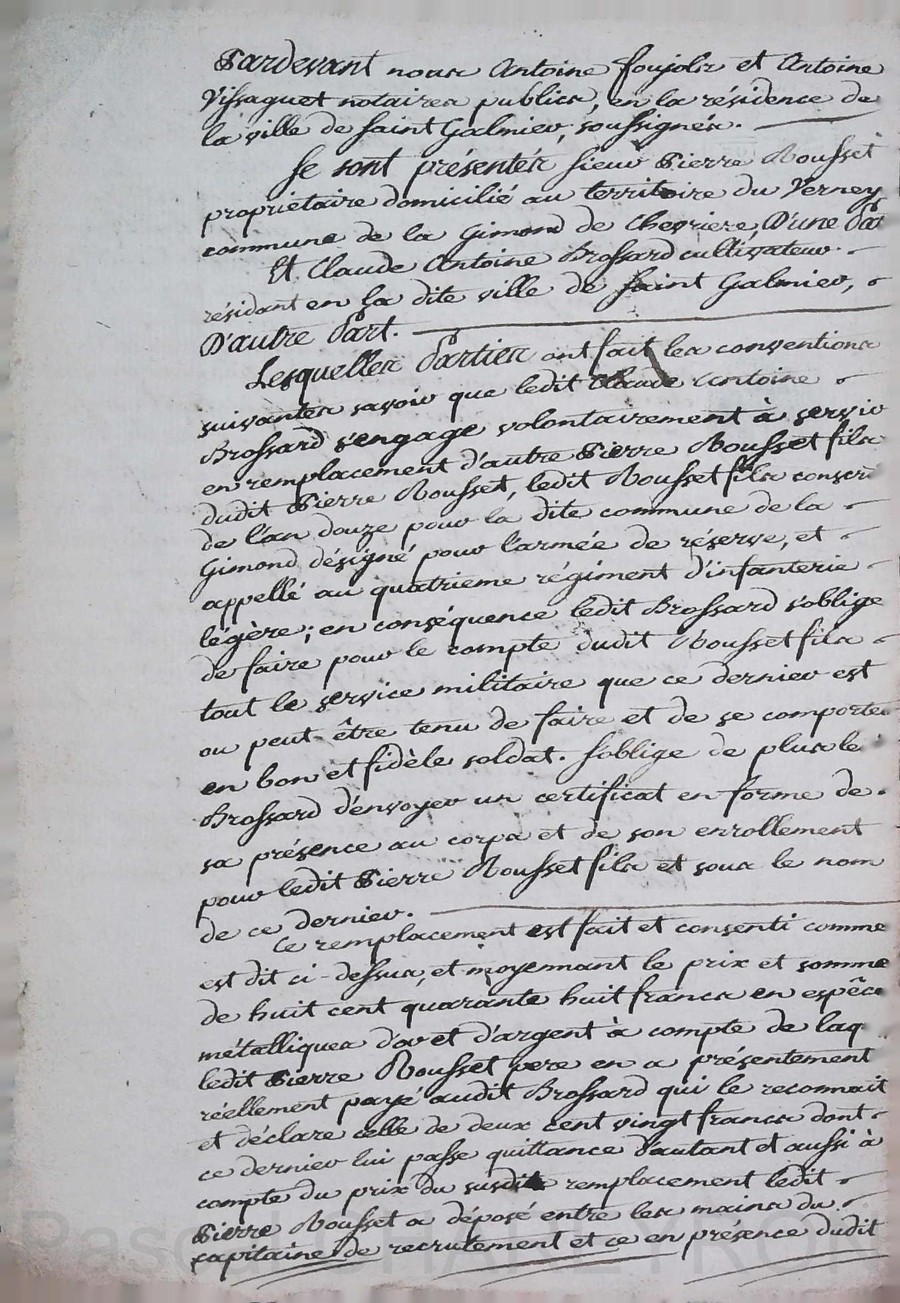 Pardevant nous Antoine Foujols et Antoine
Vissaguet notaires publics, en la résidence de
la ville de Saint Galmier, soussignés.
Se sont présentés sieur Pierre Rousset
propriétaire domicilié au territoire du Verney
commune de la Gimond de Chevriere, D'une Part
Et Claude Antoine Brossard cultivateur
résidant en la dite ville de Saint Galmier,
D'autre Part.
Lesquelles Parties ont fait les conventions
suivantes savoir que ledit Claude Antoine
Brossard s'engage volontairement à servir
en remplacement d'autre Pierre Rousset fils
dudit Pierre Rousset, ledit Rousset fils conscri
de l'an douze pour la dite commune de la
Gimond désigné pour l'armée de réserve, et
appellé au quatrieme régiment d'infanterie
légère; en conséquence ledit Brossard s'oblige
de faire pour le compte dudit Rousset fils
tout le service militaire que ce dernier est
ou peut-être tenu de faire et de se comporter
en bon et fidèle soldat. S'oblige de plus le
Brossard d'envoyer un certificat en forme de
sa présence au corps et de son enrollement
pour ledit Pierre Rousset fils et sous le nom
de ce dernier.
Ce remplacement est fait et consenti comme
est dit ci-dessus, et moyennant le prix et somme
de huit cent quarante huit francs en espèce
métalliques d'or et d'argent à compte de laq
ledit Pierre Rousset pere en a présentement
réellement payé audit Brossard qui le reconnait
et déclare celle de deux cent vingt francs dont
ce dernier lui passe quittance d'autant et aussi à
compte du prix du susdit remplacement ledit
Pierre Rousset a déposé entre les mains du
capitaine de recrutement et ce en présence dudit